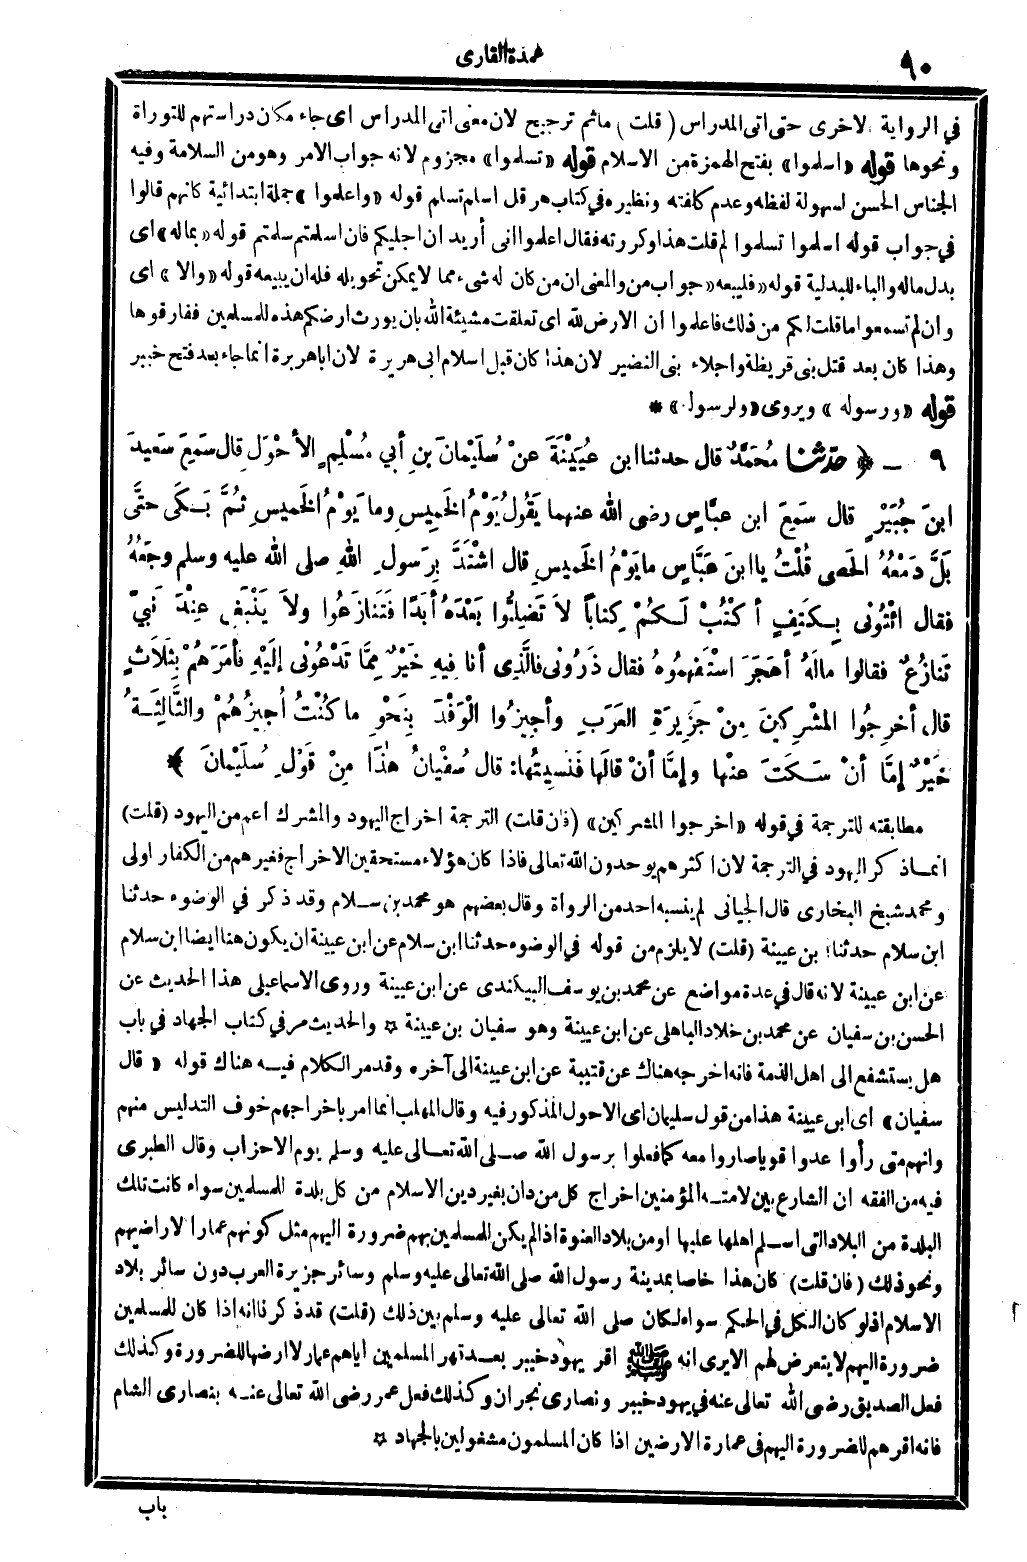 ٩٠
عمدة القارى
في الرواية الاخرى حتى اتى المدراس ( قلت ) ماثم ترجيح لان معنى اتى المدراس اى جاء مكان دراستهم للتوراة
ونحوها قوله «اسلموا» بفتح الهمزة من الاسلام قوله «تسلموا» مجزوم لانه جواب الامر وهو من السلامة وفيه
الجناس الحسن لسهولة لفظه وعدم كلفته ونظيره في كتاب هرقل اسلم تسلم قوله «واعلموا» جملة ابتدائية كانهم قالوا
في جواب قوله اسلموا تسلموا لم قلت هذا وكررته فقال اعلموا انى أريد ان اجليكم فان اسلمتم سلمتم قوله «بماله» اى
بدل ماله والباء للبدلية قوله «فليبعه» جواب من والمعنى ان من كان له شىء مما لا يمكن تحويله فله ان يبيعه قوله «والا» اى
وان لم تسمعوا ما قلت لكم من ذلك فاعلموا ان الارض لله اى تعلقت مشيئة الله بان يورث ارضكم هذه للمسلمين ففارقوها
وهذا كان بعد قتل بنى قريظة واجلاء بنى النضير لان هذا كان قبل اسلام ابى هريرة لان اباهريرة انما جاء بعد فتح خيبر
قوله «ورسوله» ويروى «ولرسوله» *
٩ - ﴿ حَدَّثَنَا مُحَمَّدٌ قال حدثنا ابن عُيَيْنَةَ عنْ سُلَيْمَانَ بنِ أبي مُسْلِمٍ الأحْوَلِ قال سَمِعَ سَعِيدَ
ابنَ جُبَيْرٍ قال سَمِعَ ابن عبَّاسٍ رضى الله عنهما يَقُولُ يَوْمُ الخَمِيسِ وما يَوْمُ الخَمِيسِ ثُمَّ بَكَى حتَّى
بَلَّ دَمْعُهُ الحَصى قُلْتُ يا ابنَ عَبَّاسٍ ما يَوْمُ الخَمِيسِ قال اشْتَدَّ بِرَسولِ اللهِ صلى الله عليه وسلم وجَعُهُ
فقال ائْتُونى بِكَتِفٍ أكْتُبْ لَكُمْ كِتاباً لاَ تَضِلُّوا بَعْدَهُ أبَدًا فَتَنازَعُوا ولاَ يَنْبَغِى عِنْدَ نَبِيّ
تَنازُعٌ فقالوا مالَهُ أهَجَرَ اسْتَفْهِمُوهُ فقال ذَرُونى فالَّذِى أنا فِيهِ خَيْرٌ مِمَّا تَدْعُونى إلَيْهِ فأمَرَهُمْ بِثَلَاثٍ
قال أخرِجُوا المُشْرِكِينَ مِنْ جَزِيرَةِ العَرَبِ وأجِيزُوا الْوَفْدَ بِنَحْوِ ما كُنْتُ أُجِيزُهُمْ والثَّالِثَةُ
خَيْرٌ إمَّا أنْ سَكَتَ عنْها وإمَّا أنْ قالَها فَنَسِيتُها: قال سُفْيانُ هذَا مِنْ قَوْلِ سُلَيْمانَ ﴾
مطابقته للترجمة في قوله «اخرجوا المشركين» (فان قلت) الترجمة اخراج اليهود والمشرك اعم من اليهود (قلت)
انما ذكر اليهود في الترجمة لان اكثرهم يوحدون الله تعالى فاذا كان هؤلاء مستحقين الاخراج فغيرهم من الكفار اولى
ومحمد شيخ البخارى قال الجيانى لم ينسبه احد من الرواة وقال بعضهم هو محمد بن سلام وقد ذكر في الوضوء حدثنا
ابن سلام حدثنا ابن عيينة (قلت) لا يلزم من قوله في الوضوء حدثنا ابن سلام عن ابن عيينة ان يكون هنا ايضا ابن سلام
عن ابن عيينة لانه قال في عدة مواضع عن محمد بن يوسف البيكندى عن ابن عيينة وروى الاسماعيلى هذا الحديث عن
الحسن بن سفيان عن محمد بن خلاد الباهلى عن ابن عيينة وهو سفيان بن عيينة ☆ والحديث مر في كتاب الجهاد في باب
هل يستشفع الى اهل الذمة فانه اخرجه هناك عن قتيبة عن ابن عيينة الى آخره وقد مر الكلام فيه هناك قوله « قال
سفيان» اى ابن عيينة هذا من قول سليمان اى الاحول المذكور فيه وقال المهلب انما امر باخراجهم خوف التدليس منهم
وانهم متى رأوا عدوا قويا صاروا معه كما فعلوا برسول الله صلى الله تعالى عليه وسلم يوم الاحزاب وقال الطبرى
فيه من الفقه ان الشارع بين لامته المؤمنين اخراج كل من دان بغير دين الاسلام من كل بلدة للمسلمين سواء كانت تلك
البلدة من البلاد التى اسلم اهلها عليها او من بلاد العنوة اذا لم يكن للمسلمين بهم ضرورة اليهم مثل كونهم عمارا لاراضيهم
ونحو ذلك (فان قلت) كان هذا خاصا بمدينة رسول الله صلى الله تعالى عليه وسلم وسائر جزيرة العرب دون سائر بلاد
الاسلام اذ لو كان الكل في الحكم سواء لكان صلى الله تعالى عليه وسلم بين ذلك (قلت) قد ذكرنا انه اذا كان للمسلمين
ضرورة اليهم لا يتعرض لهم الا يرى انه ﷺ اقر يهود خيبر بعد قهر المسلمين اياهم عمارا لارضها للضرورة وكذلك
فعل الصديق رضى الله تعالى عنه في يهود خيبر ونصارى نجران وكذلك فعل عمر رضى الله تعالى عنه بنصارى الشام
فانه اقرهم للضرورة اليهم في عمارة الارضين اذا كان المسلمون مشغولين بالجهاد ☆
باب